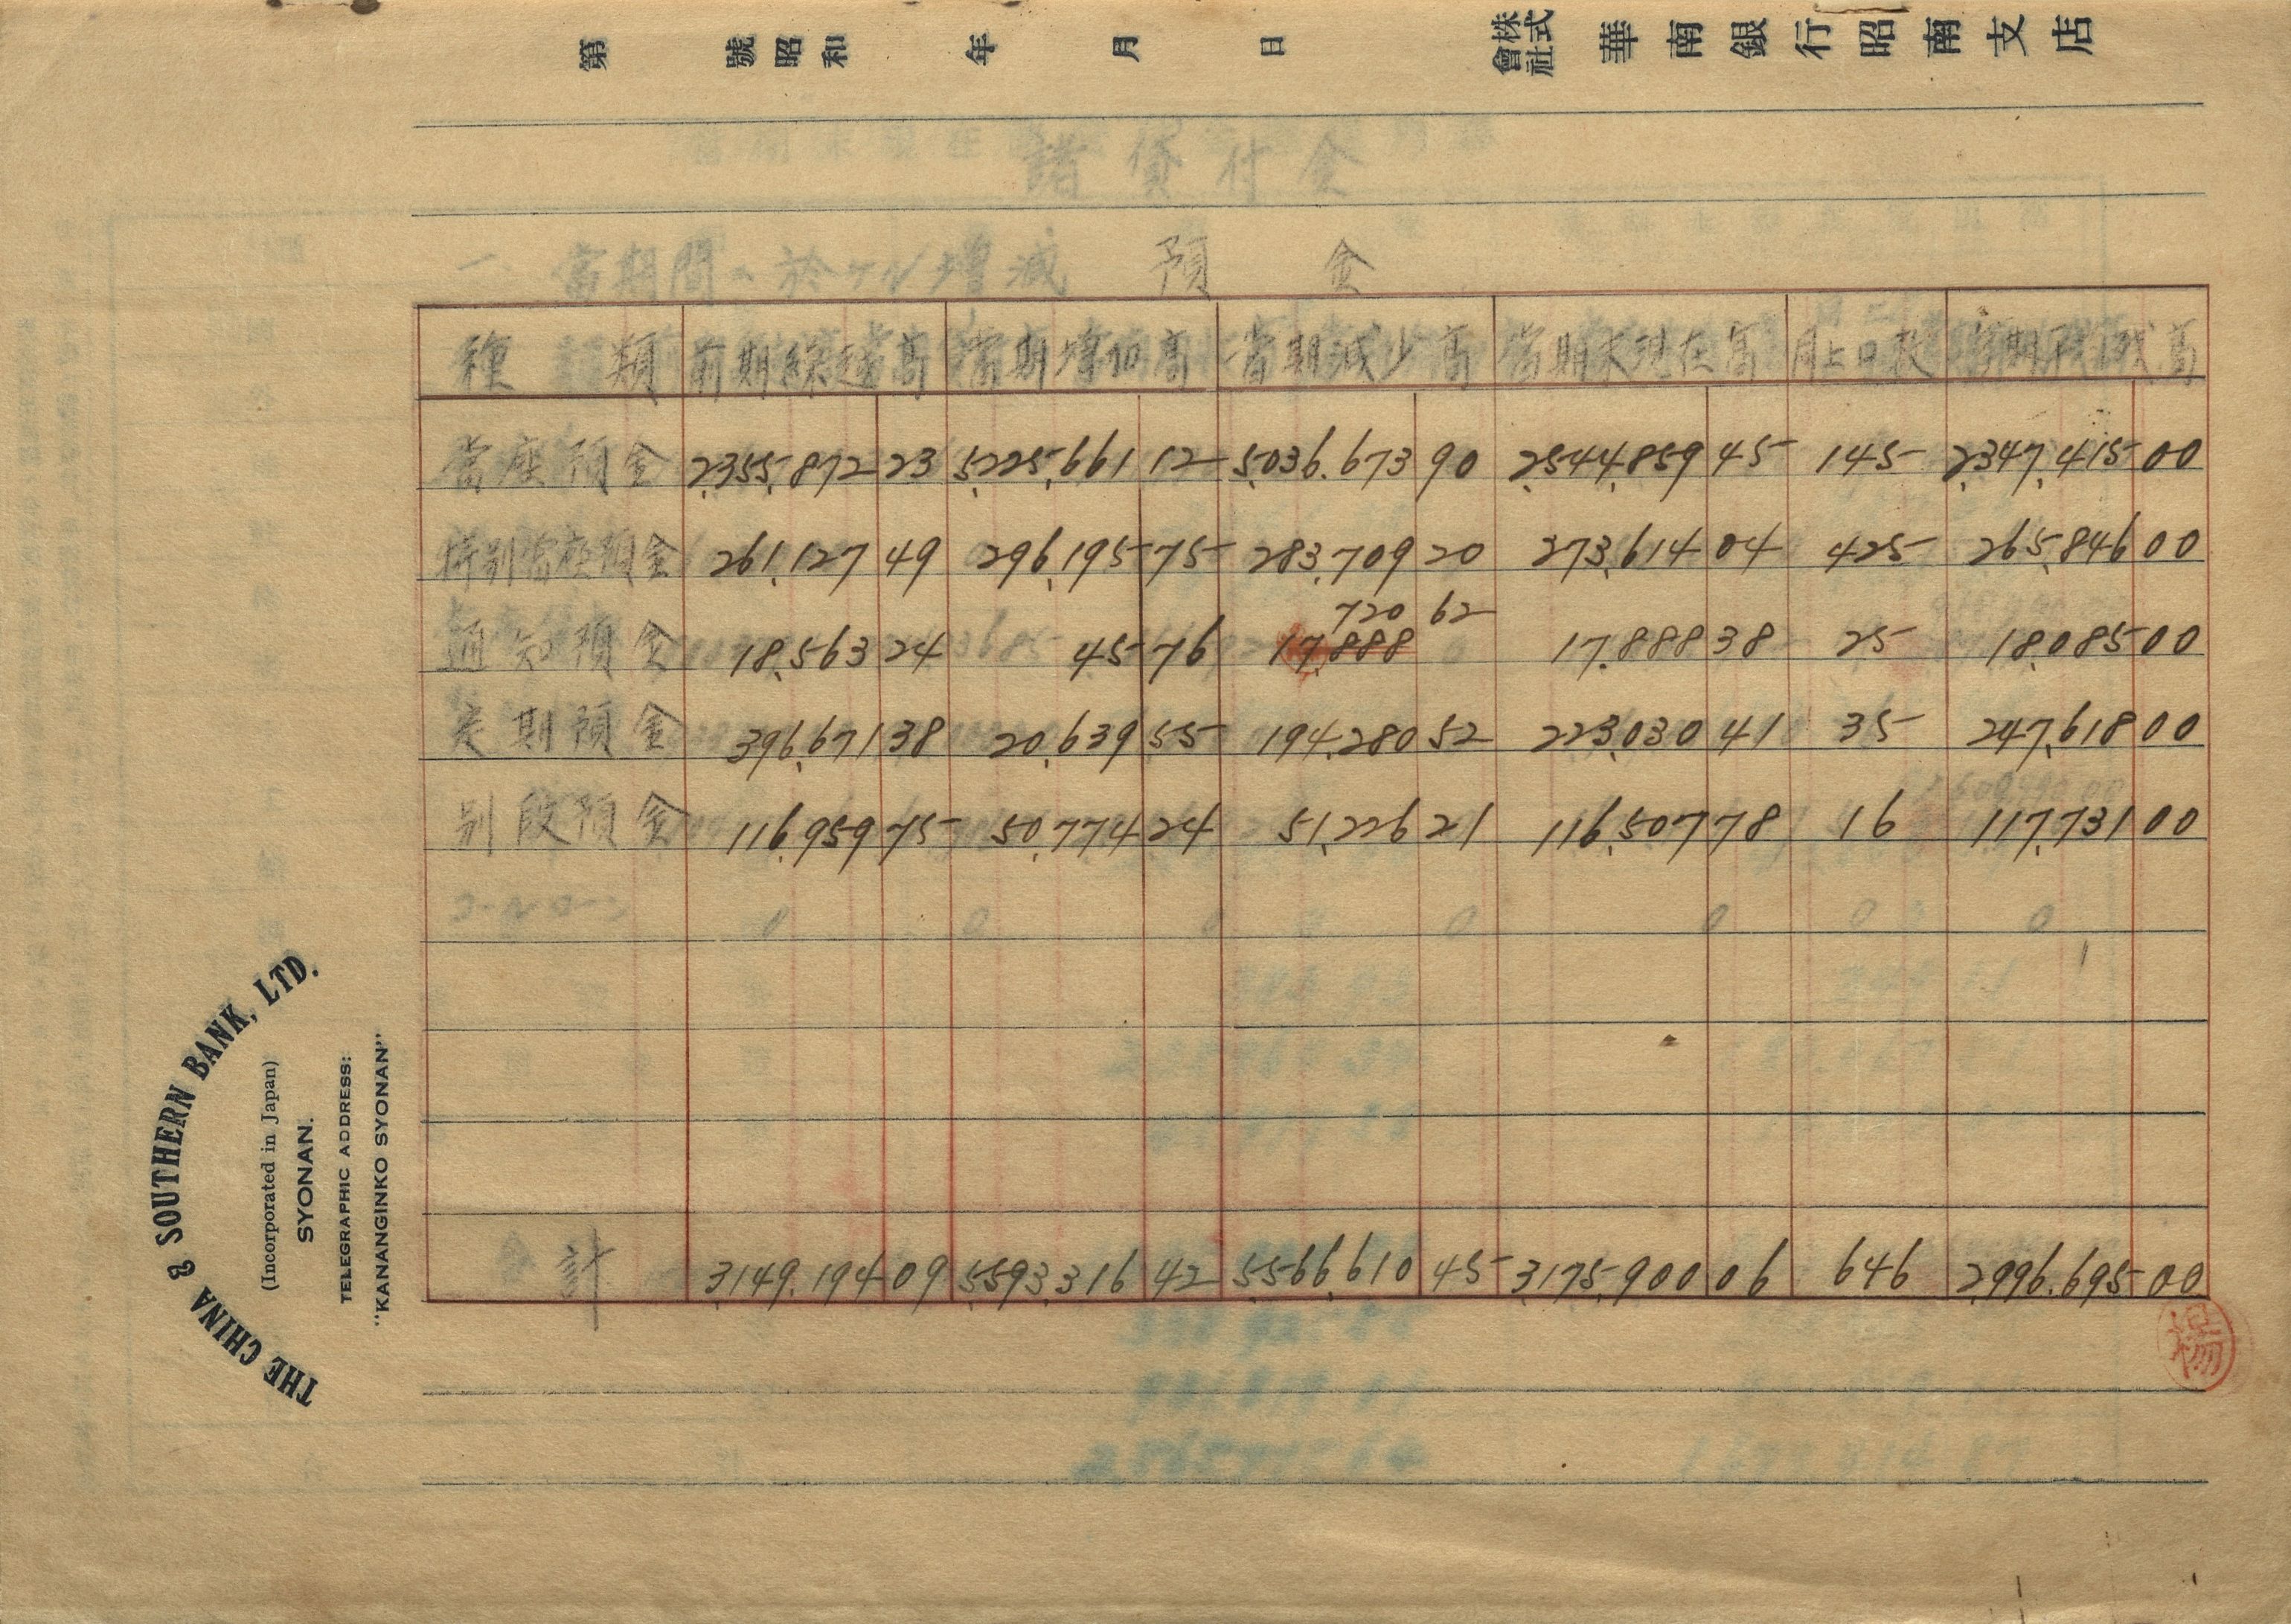 第 號 昭和 年 月 日 株式會社 華南銀行昭南支店
諸貸付金
一 當期間ニ於ケル增減 預金
種類 前期繰越高 當期增加高 當期減少高 當期末現在高 同上口數
當座預金 2,355,872 23 5,225,661 12 5,036,673 90 2,544,859 45 145 2,347,415 00
特別當座預金 261,127 49 296,195 75 283,709 20 273,614 04 425 265,846 00
720 62
通知預金 18,563 24 45 76 17,888 17,888 38 25 18,085 00
定期預金 396,671 38 20,639 55 194,280 52 223,030 41 35 247,618 00
別段預金 116,959 75 50,774 24 51,226 21 116,507 78 16 117,731 00
コールローン 0 0 0 0 0 0 0
合計 3,149,194 09 5,593,316 42 5,566,610 45 3,175,900 06 646 2,996,695 00
楊
THE CHINA & SOUTHERN BANK, LTD.
(Incorporated in Japan)
SYONAN.
TELEGRAPHIC ADDRESS:
"KANANGINKO SYONAN"